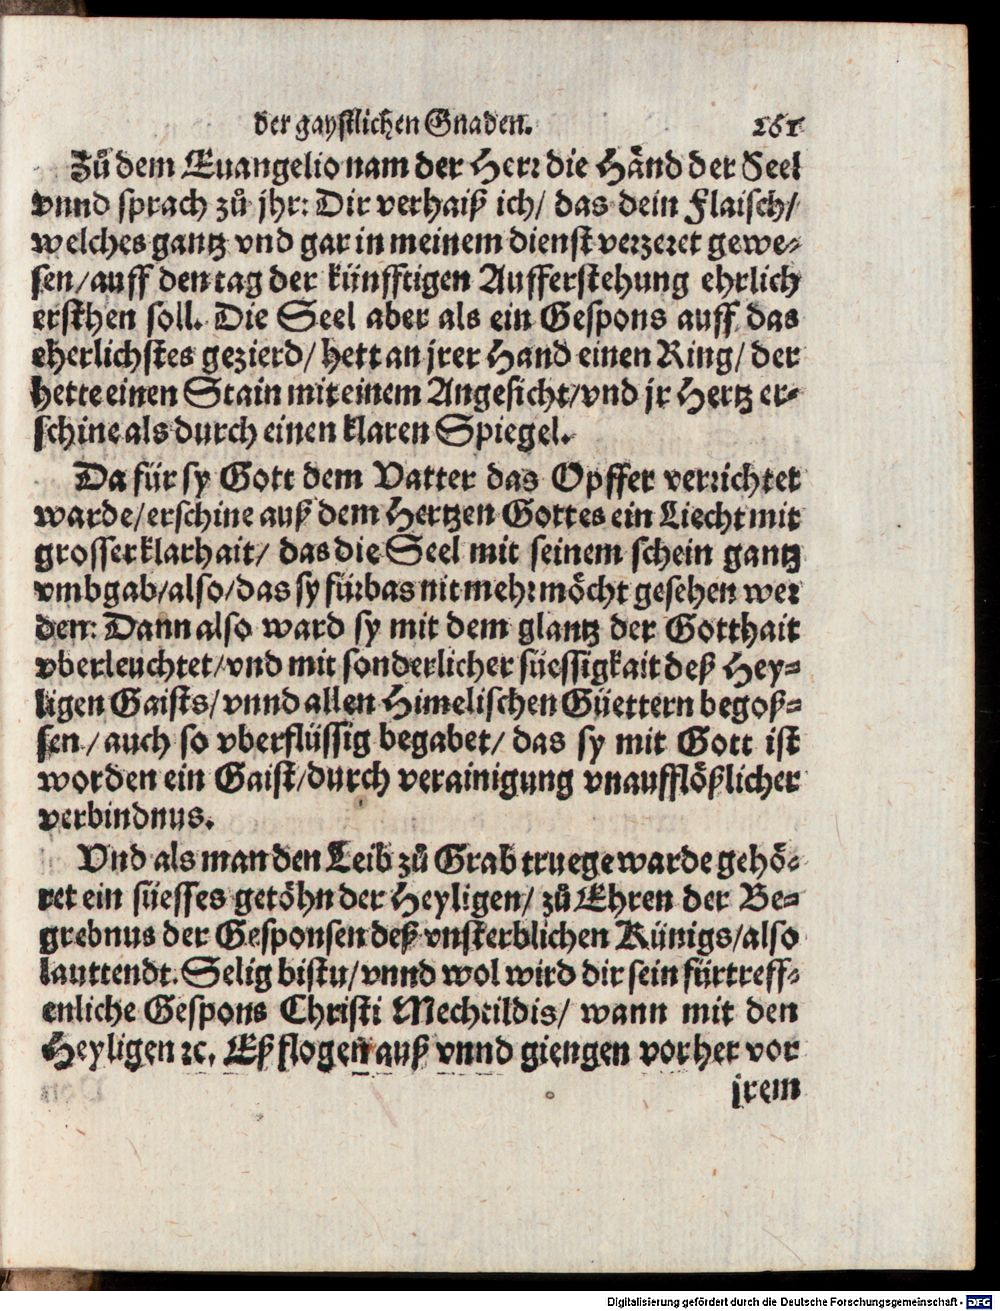 der gaystlichen Gnaden. 261
Zů dem Euangelio nam der Herr die Händ der Seel
vnnd sprach zů jhr: Dir verhaiß ich/ das dein Flaisch/
welches gantz vnd gar in meinem dienst verzeret gewe-
sen/auff den tag der künfftigen Aufferstehung ehrlich
ersthen soll. Die Seel aber als ein Gespons auff das
eherlichstes gezierd/ hett an jrer Hand einen Ring/ der
hette einen Stain mit einem Angesicht/vnd jr Hertz er-
schine als durch einen klaren Spiegel.
Da für sy Gott dem Vatter das Opffer verrichtet
warde/erschine auß dem Hertzen Gottes ein Liecht mit
grosser klarhait/ das die Seel mit seinem schein gantz
vmbgab/also/das sy fürbas nit mehr möcht gesehen wer
den: Dann also ward sy mit dem glantz der Gotthait
vberleuchtet/vnd mit sonderlicher süessigkait deß Hey-
ligen Gaists/vnnd allen Himelischen Güettern begoß-
sen/auch so vberflüssig begabet/ das sy mit Gott ist
worden ein Gaist/durch verainigung vnaufflößlicher
verbindnus.
Vnd als man den Leib zů Grab truege warde gehö-
ret ein süesses getöhn der Heyligen/ zů Ehren der Be-
grebnus der Gesponsen deß vnsterblichen Künigs/also
lauttendt. Selig bistu/vnnd wol wird dir sein fürtreff-
enliche Gespons Christi Mechtildis/ wann mit den
Heyligen ꝛc. Eß flogen auß vnnd giengen vorher vor
jrem
Digitalisierung gefördert durch die Deutsche Forschungsgemeinschaft - DFG